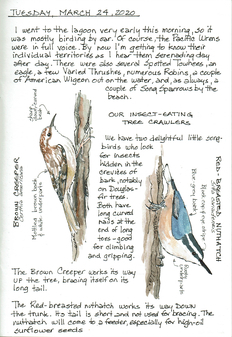 TUESDAY, MARCH 24, 2020
I went to the lagoon very early this morning, so it
was mostly birding by ear. Of course, the Pacific Wrens
were in full voice. By now I'm getting to know their
individual territories as I hear them serenading day
after day. There were also several Spotted Towhees, an
eagle, a few Varied Thrushes, numerous Robins, a couple
of American Wigeon out on the water, and, as always, a
couple of Song Sparrows by the
beach.
OUR INSECT-EATING
TREE CRAWLERS
We have two delightful little song-
birds who look
for insects
hidden in the
crevices of
bark, notably
on Douglas-
fir trees.
Both have
long curved
nails at the
end of long
toes - good
for climbing
and gripping.
BROWN CREEPER
RED-BREASTED NUTHATCH
The Brown Creeper works its way
UP the tree, bracing itself on its
long tail.
The Red-breasted nuthatch works its way DOWN
the trunk. Its tail is short and not used for bracing. The
nuthatch will come to a feeder, especially for high-oil
sunflower seeds